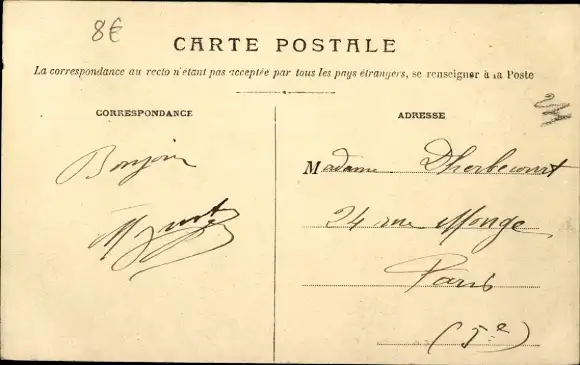 8€
CARTE POSTALE
La correspondance au recto n'étant pas acceptée par tous les pays étrangers, se renseigner à la Poste
CORRESPONDANCE
ADRESSE
Bonjour
Madame Dherbecourt
24 rue Monge
Paris
(5e)